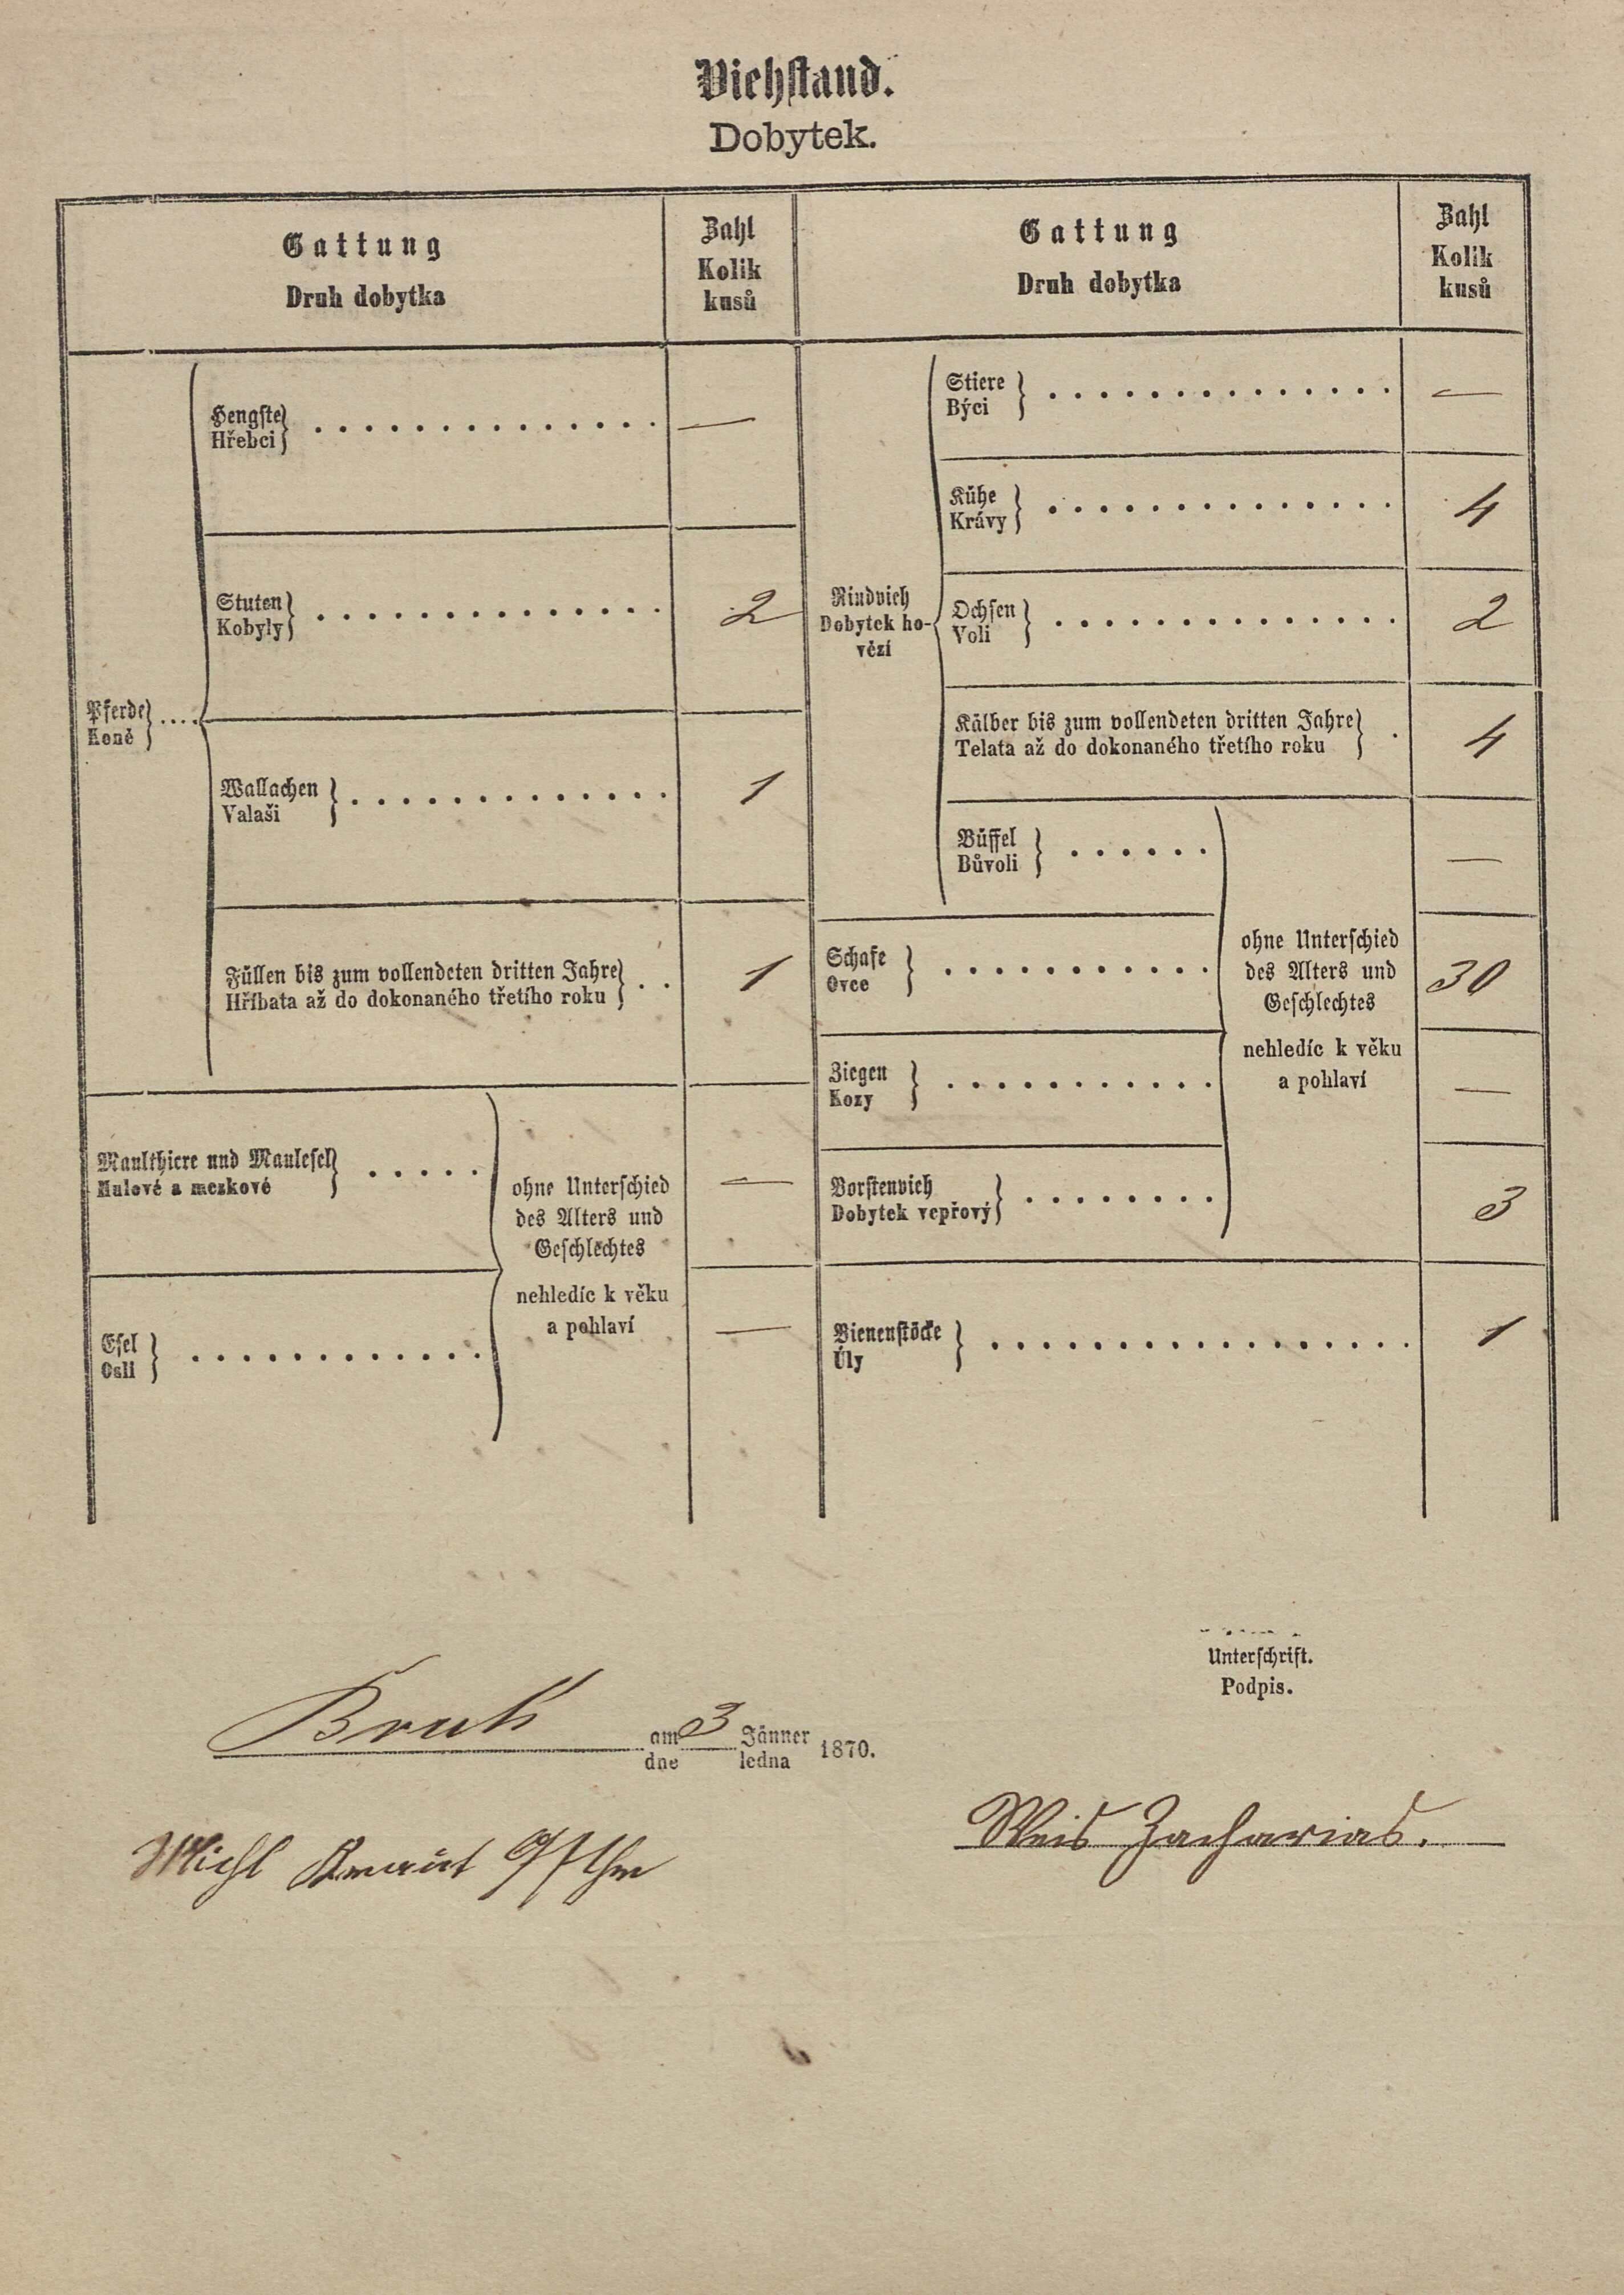 Viehstand.
Dobytek.
Gattung
Druh dobytka
Zahl
Kolik
kusů
Pferde
Koně
Hengste
Hřebci
—
Stuten
Kobyly
2
Wallachen
Valaši
1
Füllen bis zum vollendeten dritten Jahre
Hříbata až do dokonaného třetího roku
1
Maulthiere und Maulesel
Mulové a mezkové
—
Esel
Osli
—
ohne Unterschied
des Alters und
Geschlechtes
nehledíc k věku
a pohlaví
Gattung
Druh dobytka
Zahl
Kolik
kusů
Rindvieh
Dobytek ho-
vězí
Stiere
Býci
—
Kühe
Krávy
4
Ochsen
Voli
2
Kälber bis zum vollendeten dritten Jahre
Telata až do dokonaného třetího roku
4
Büffel
Bůvoli
—
Schafe
Ovce
30
Ziegen
Kozy
—
Borstenvieh
Dobytek vepřový
3
ohne Unterschied
des Alters und
Geschlechtes
nehledíc k věku
a pohlaví
Bienenstöcke
Úly
1
Unterschrift.
Podpis.
Bruk am 3 Jänner 1870.
dne ledna
Weis Zacharias.
Michl